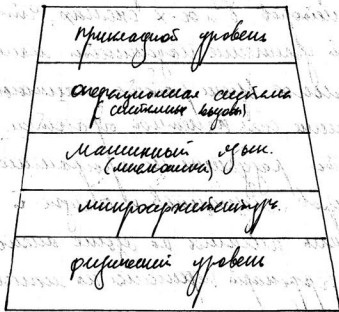 прикладной уровень
операционная система
(системные вызовы)
машинный язык.
(мнемоника)
микроархитектур.
физический уровень